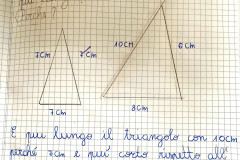 7cm 7cm
10cm 6cm
7cm
8cm
È piu lungo il triangolo con 10cm
perché 7cm è piu' corto rispetto all'